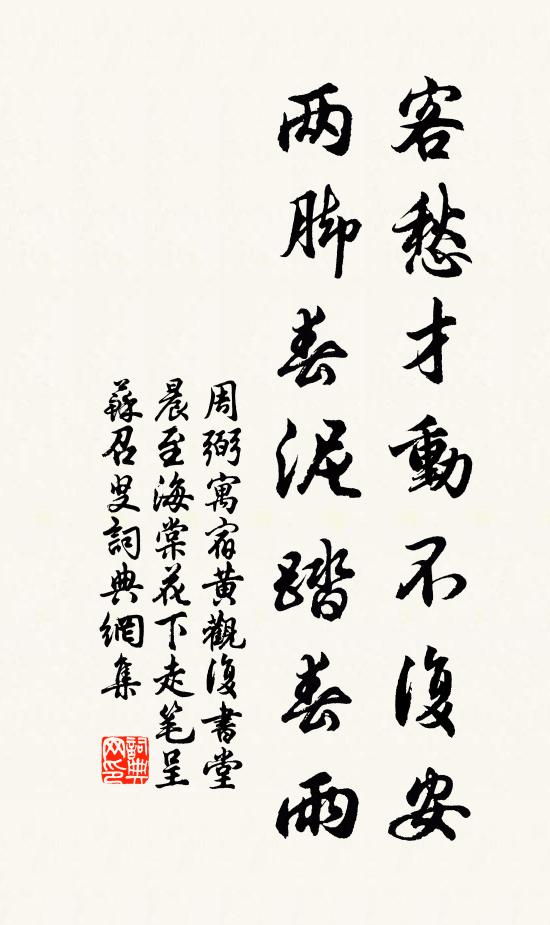 客愁才動不復安
两脚春泥踏春雨
周弼寓宿黄觀復書堂
晨至海棠花下走笔呈
蘇召叟詞典網集
詞典网印